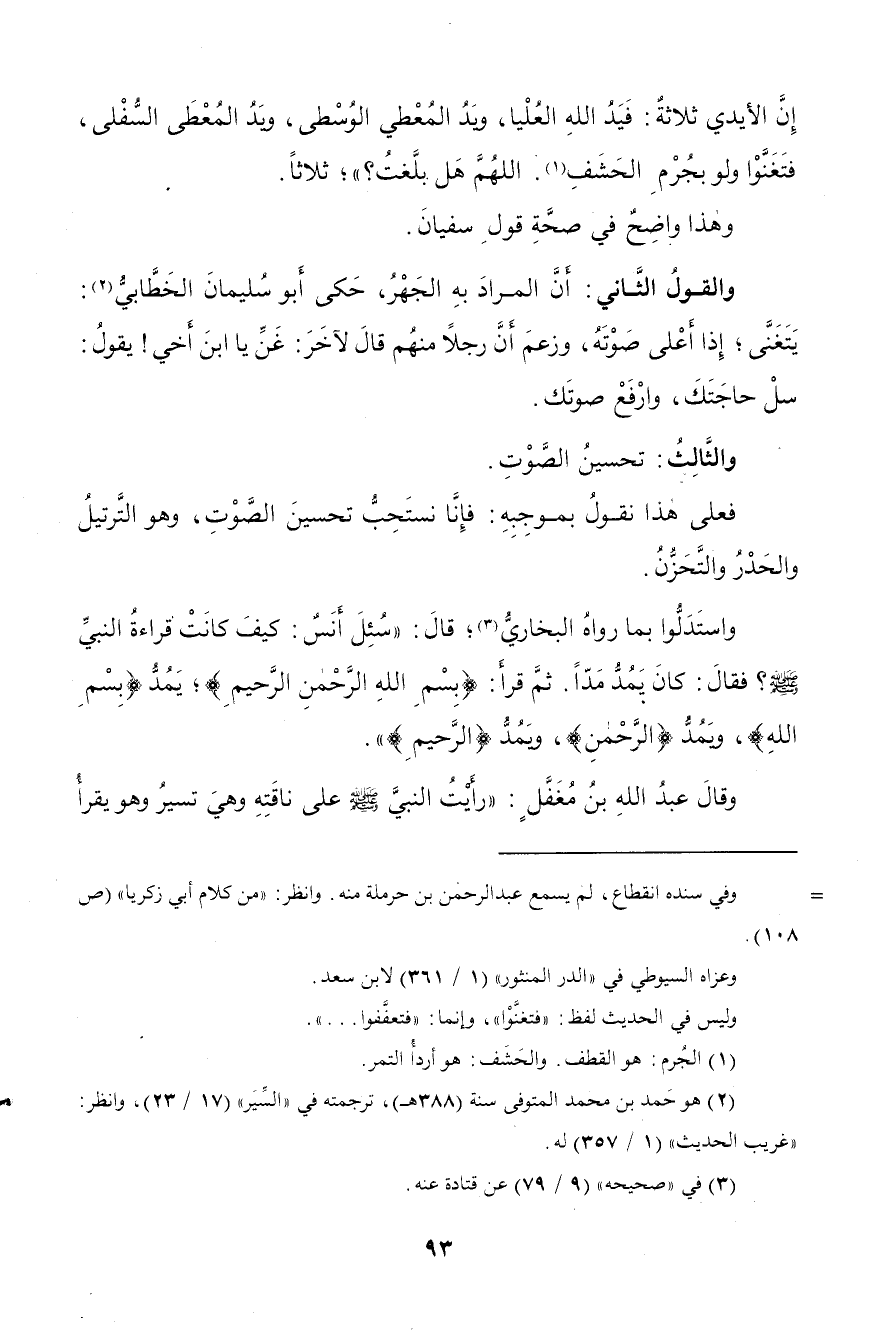 إِنَّ الأيدي ثلاثةٌ: فَيَدُ اللهِ العُلْيا، ويَدُ المُعْطي الوُسْطى، ويَدُ المُعْطَى السُّفْلى،
فتَغَنَّوْا ولو بجُرْمِ الحَشَفِ(١). اللهُمَّ هَل بلَّغتُ؟»؛ ثلاثاً.
وهٰذا واضِحٌ في صحَّةِ قولِ سفيانَ.
والقولُ الثَّاني: أَنَّ المرادَ بهِ الجَهْرُ، حَكى أَبو سُليمانَ الخَطَّابيُّ(٢):
يَتَغَنَّى؛ إِذا أَعْلى صَوْتَهُ، وزعمَ أَنَّ رجلاً منهُم قالَ لآخَرَ: غَنِّ يا ابنَ أَخي! يقولُ:
سلْ حاجَتَكَ، وارْفَعْ صوتَك.
والثَّالِثُ: تحسينُ الصَّوْتِ.
فعلى هٰذا نقولُ بموجِبِهِ: فإِنَّا نستَحِبُّ تحسينَ الصَّوْتِ، وهو التَّرتيلُ
والحَدْرُ والتَّحَزُّنُ.
واستَدَلُّوا بما رواهُ البخاريُّ(٣)؛ قالَ: «سُئِلَ أَنَسٌ: كيفَ كانَتْ قراءةُ النبيِّ
ﷺ؟ فقالَ: كانَ يَمُدُّ مَدّاً. ثمَّ قرأَ: ﴿بِسْمِ اللهِ الرَّحْمٰنِ الرَّحيمِ﴾؛ يَمُدُّ ﴿بِسْمِ
اللهِ﴾، ويَمُدُّ ﴿الرَّحْمٰنِ﴾، ويَمُدُّ ﴿الرَّحيمِ﴾».
وقالَ عبدُ اللهِ بنُ مُغَفَّلٍ: «رأَيْتُ النبيَّ ﷺ على ناقَتِهِ وهيَ تسيرُ وهو يقرأُ
= وفي سنده انقطاع، لم يسمع عبدالرحمٰن بن حرملة منه. وانظر: «من كلام أبي زكريا» (ص
١٠٨).
وعزاه السيوطي في «الدر المنثور» (١ / ٣٦١) لابن سعد.
وليس في الحديث لفظ: «فتغنَّوْا»، وإنما: «فتعفَّفوا...».
(١) الجُرم: هو القطف. والحَشَف: هو أردأُ التمر.
(٢) هو حَمد بن محمد المتوفى سنة (٣٨٨هـ)، ترجمته في «السِّيَر» (١٧ / ٢٣)، وانظر:
«غريب الحديث» (١ / ٣٥٧) له.
(٣) في «صحيحه» (٩ / ٧٩) عن قتادة عنه.
٩٣